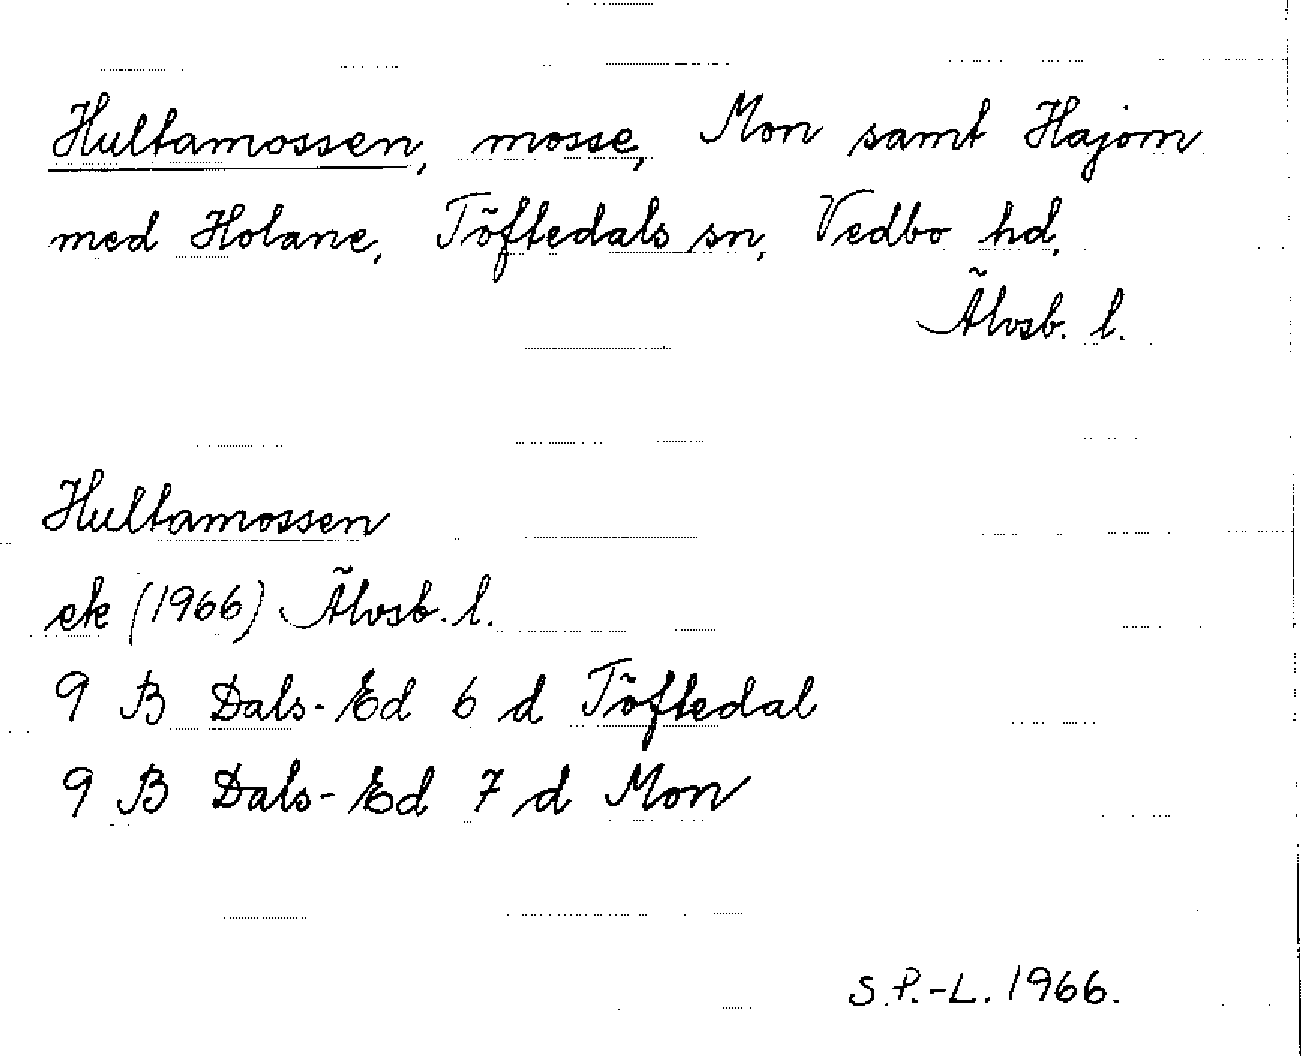 Hultamossen, mosse, Mon samt Hajom
med Holane, Töftedals sn, Vedbo hd,
Älvsb. l.
Hultamossen
ek (1966) Älvsb. l.
9 B Dals-Ed 6 d Töftedal
9 B Dals-Ed 7 d Mon
S.P.-L. 1966.